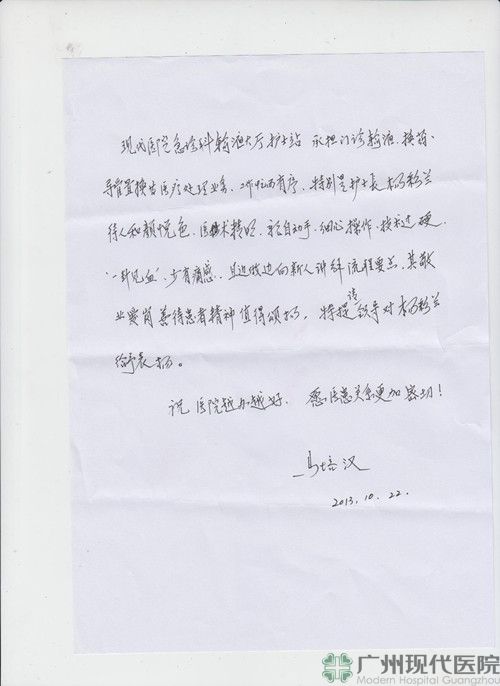 现代医院急诊科输液大厅护士站 承担门诊输液、换药、
导管置换等医疗处理业务、工作忙而有序,特别是护士长杨彩兰
待人和颜悦色、医技术精明、亲自动手、细心操作、技术过硬,
“一针见血”、少有痛感,且边做边向新人讲解流程要点,其敬
业爱岗善待患者精神值得颂扬,特提请领导对杨彩兰
给予表扬。
祝医院越办越好,愿医患关系更加密切!
马培汉
2013.10.22.
广州现代医院
Modern Hospital Guangzhou